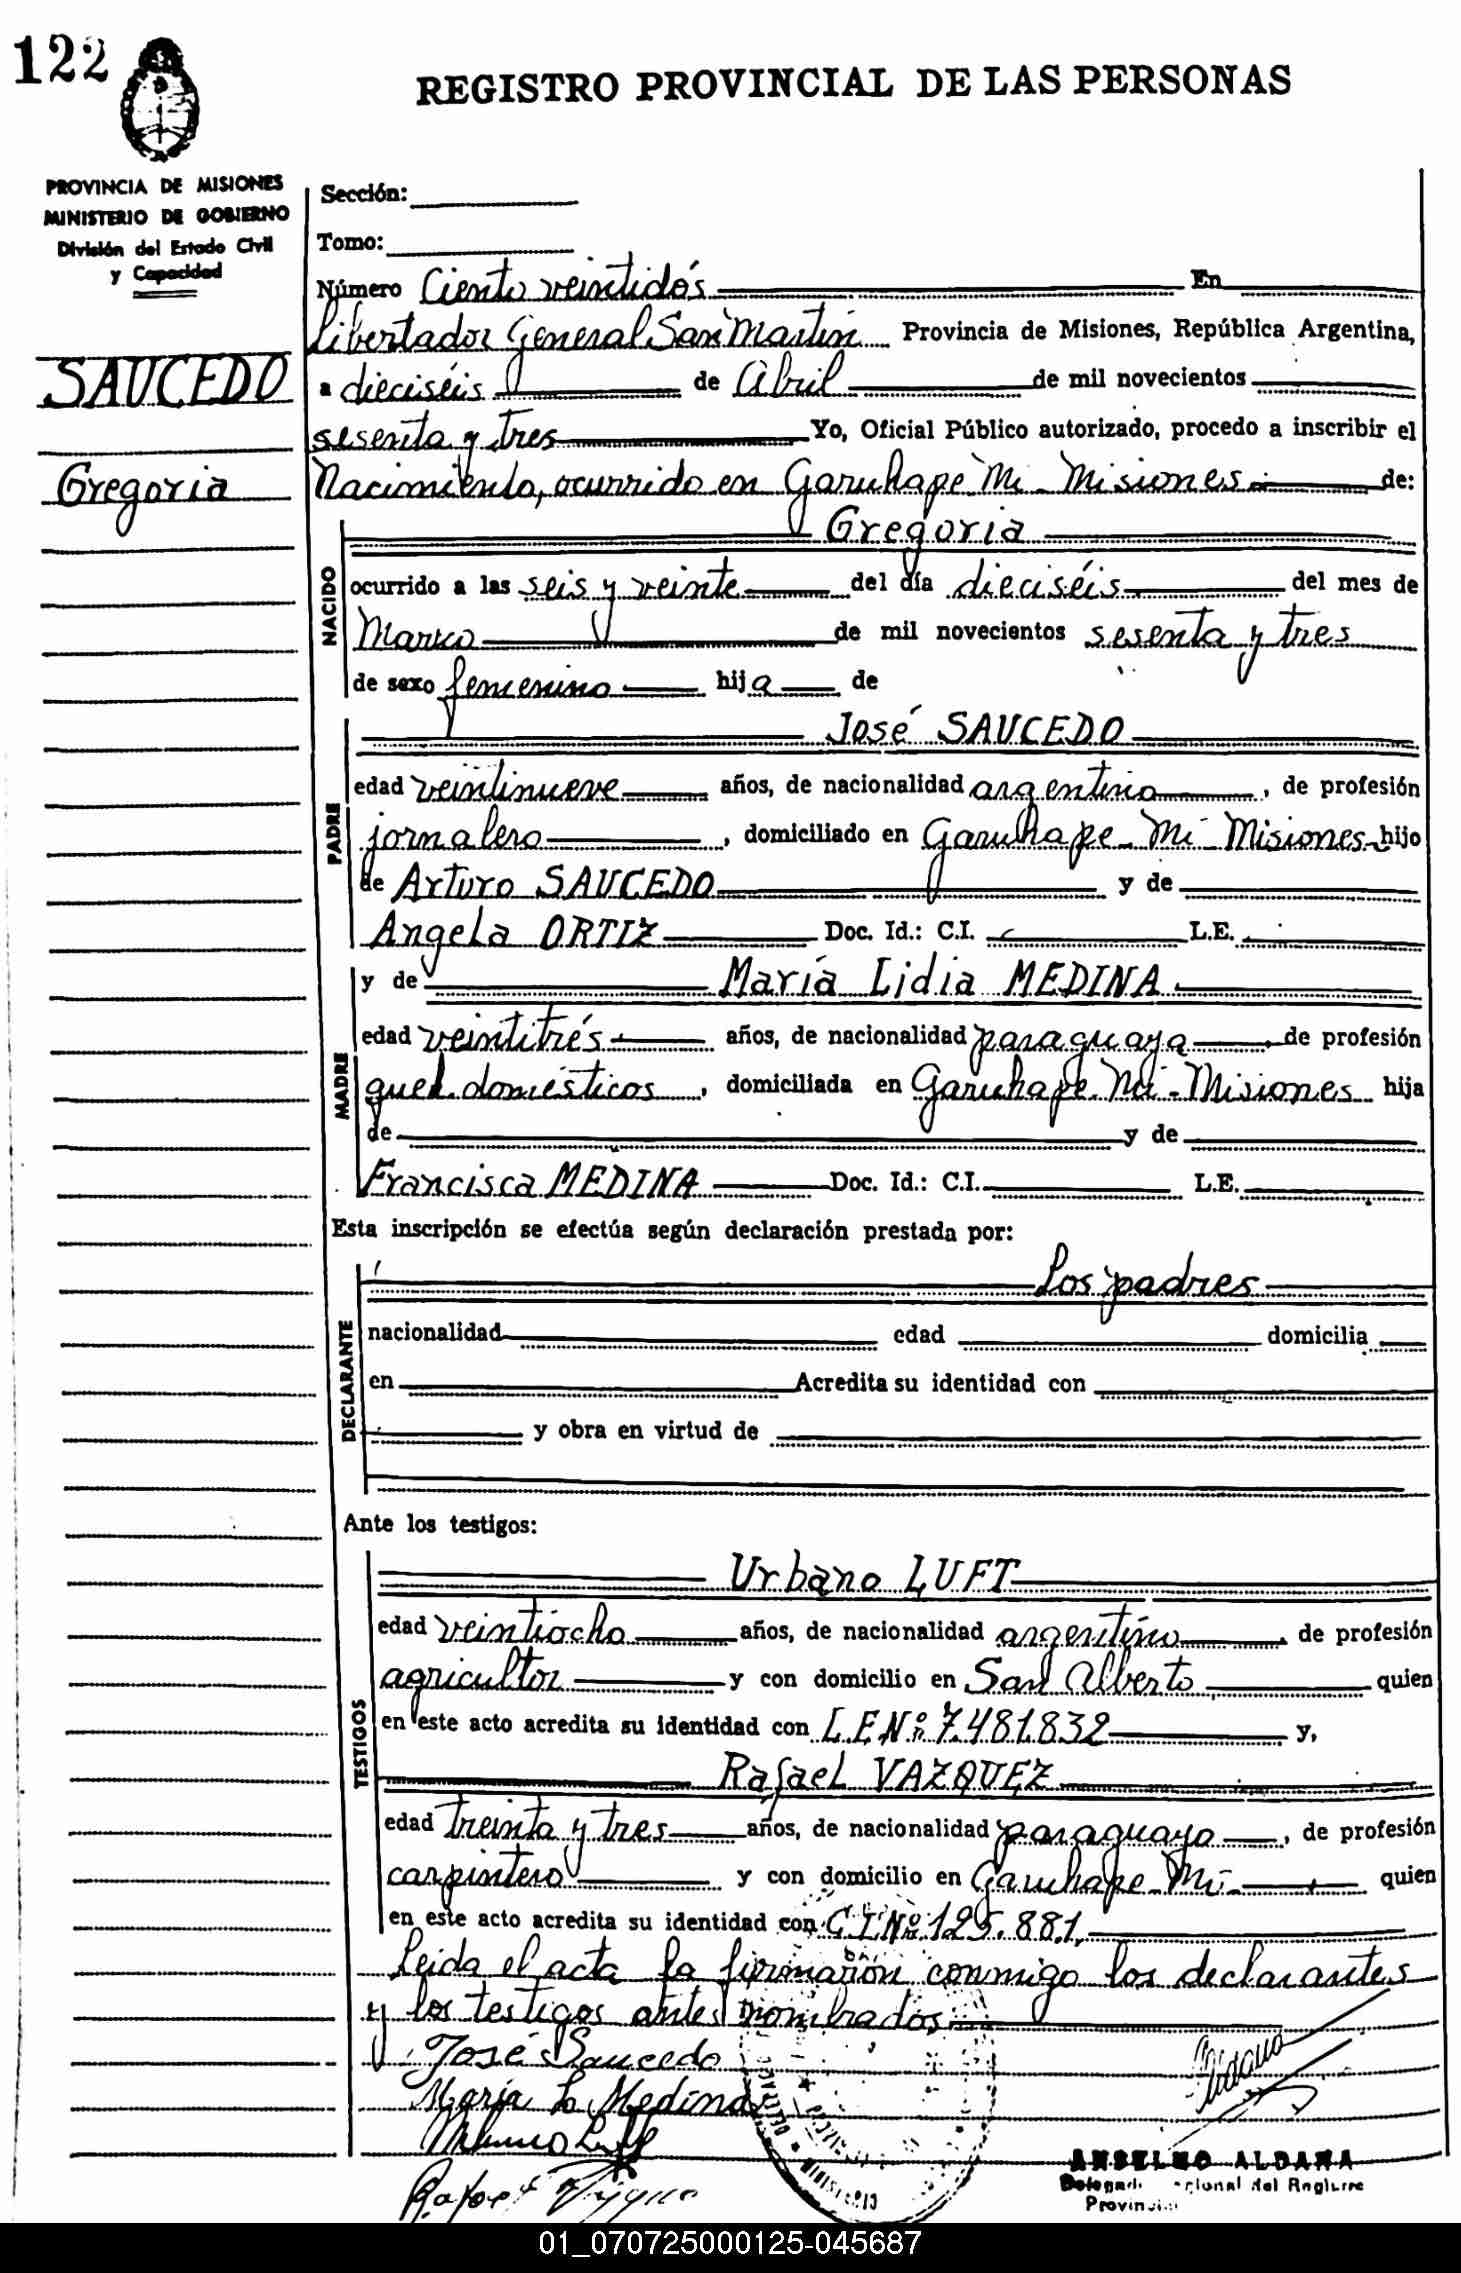 122
REGISTRO PROVINCIAL DE LAS PERSONAS
PROVINCIA DE MISIONES
MINISTERIO DE GOBIERNO
División del Estado Civil
y Capacidad
SAUCEDO
Gregoria
Sección:
Tomo:
Número Ciento veintidós En
Libertador General San Martín Provincia de Misiones, República Argentina,
a dieciséis de Abril de mil novecientos
sesenta y tres Yo, Oficial Público autorizado, procedo a inscribir el
Nacimiento, ocurrido en Garuhape Mi - Misiones de:
NACIDO
Gregoria
ocurrido a las seis y veinte del día dieciséis del mes de
Marzo de mil novecientos sesenta y tres
de sexo femenino hija de
PADRE
José SAUCEDO
edad veintinueve años, de nacionalidad argentino, de profesión
jornalero, domiciliado en Garuhape - Mi - Misiones hijo
de Arturo SAUCEDO y de
Angela ORTIZ Doc. Id.: C.I. L.E.
MADRE
y de María Lidia MEDINA
edad veintitrés años, de nacionalidad paraguaya, de profesión
queh. domésticos, domiciliada en Garuhape Mi - Misiones hija
de y de
Francisca MEDINA Doc. Id.: C.I. L.E.
Esta inscripción se efectúa según declaración prestada por:
DECLARANTE
Los padres
nacionalidad edad domicilia
en Acredita su identidad con
y obra en virtud de
Ante los testigos:
TESTIGOS
Urbano LUFT
edad veintiocho años, de nacionalidad argentino, de profesión
agricultor y con domicilio en San Alberto quien
en este acto acredita su identidad con L.E.Nº 7.481.832 y,
Rafael VAZQUEZ
edad treinta y tres años, de nacionalidad paraguayo, de profesión
carpintero y con domicilio en Garuhape - Mi - quien
en este acto acredita su identidad con C.I.Nº 125.881.
Leida el acta la firmaron conmigo los declarantes
y los testigos antes nombrados
José Saucedo
María L. Medina
Rafael
ANSELMO ALDANA
Provincial
01_070725000125-045687